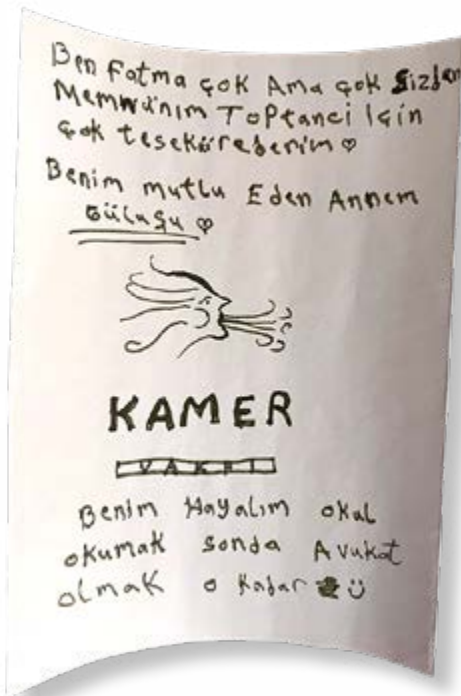 Ben Fatma çok Ama çok Sizden
Memnunim Toptanci için
çok tesekürederim ♡
Benim mutlu Eden Annem
Gülüşü ♡
KAMER
VAKFI
Benim Hayalim okul
okumak sonda Avukat
olmak o kadar